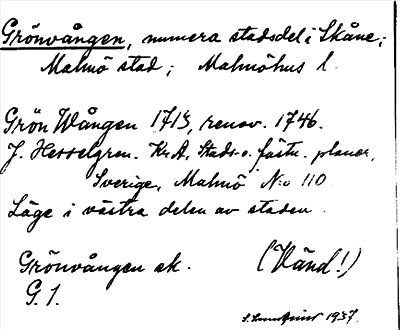 Grönvången, numera stadsdel i Skåne;
Malmö stad; Malmöhus l.
Grön Wången 1713, renov. 1746.
J. Hesselgren. Kr.A, Stads- o. fästn. planer,
Sverige, Malmö N:o 110
Läge i västra delen av staden.
Grönvången ek. (Vänd!)
G. 1.
1937.